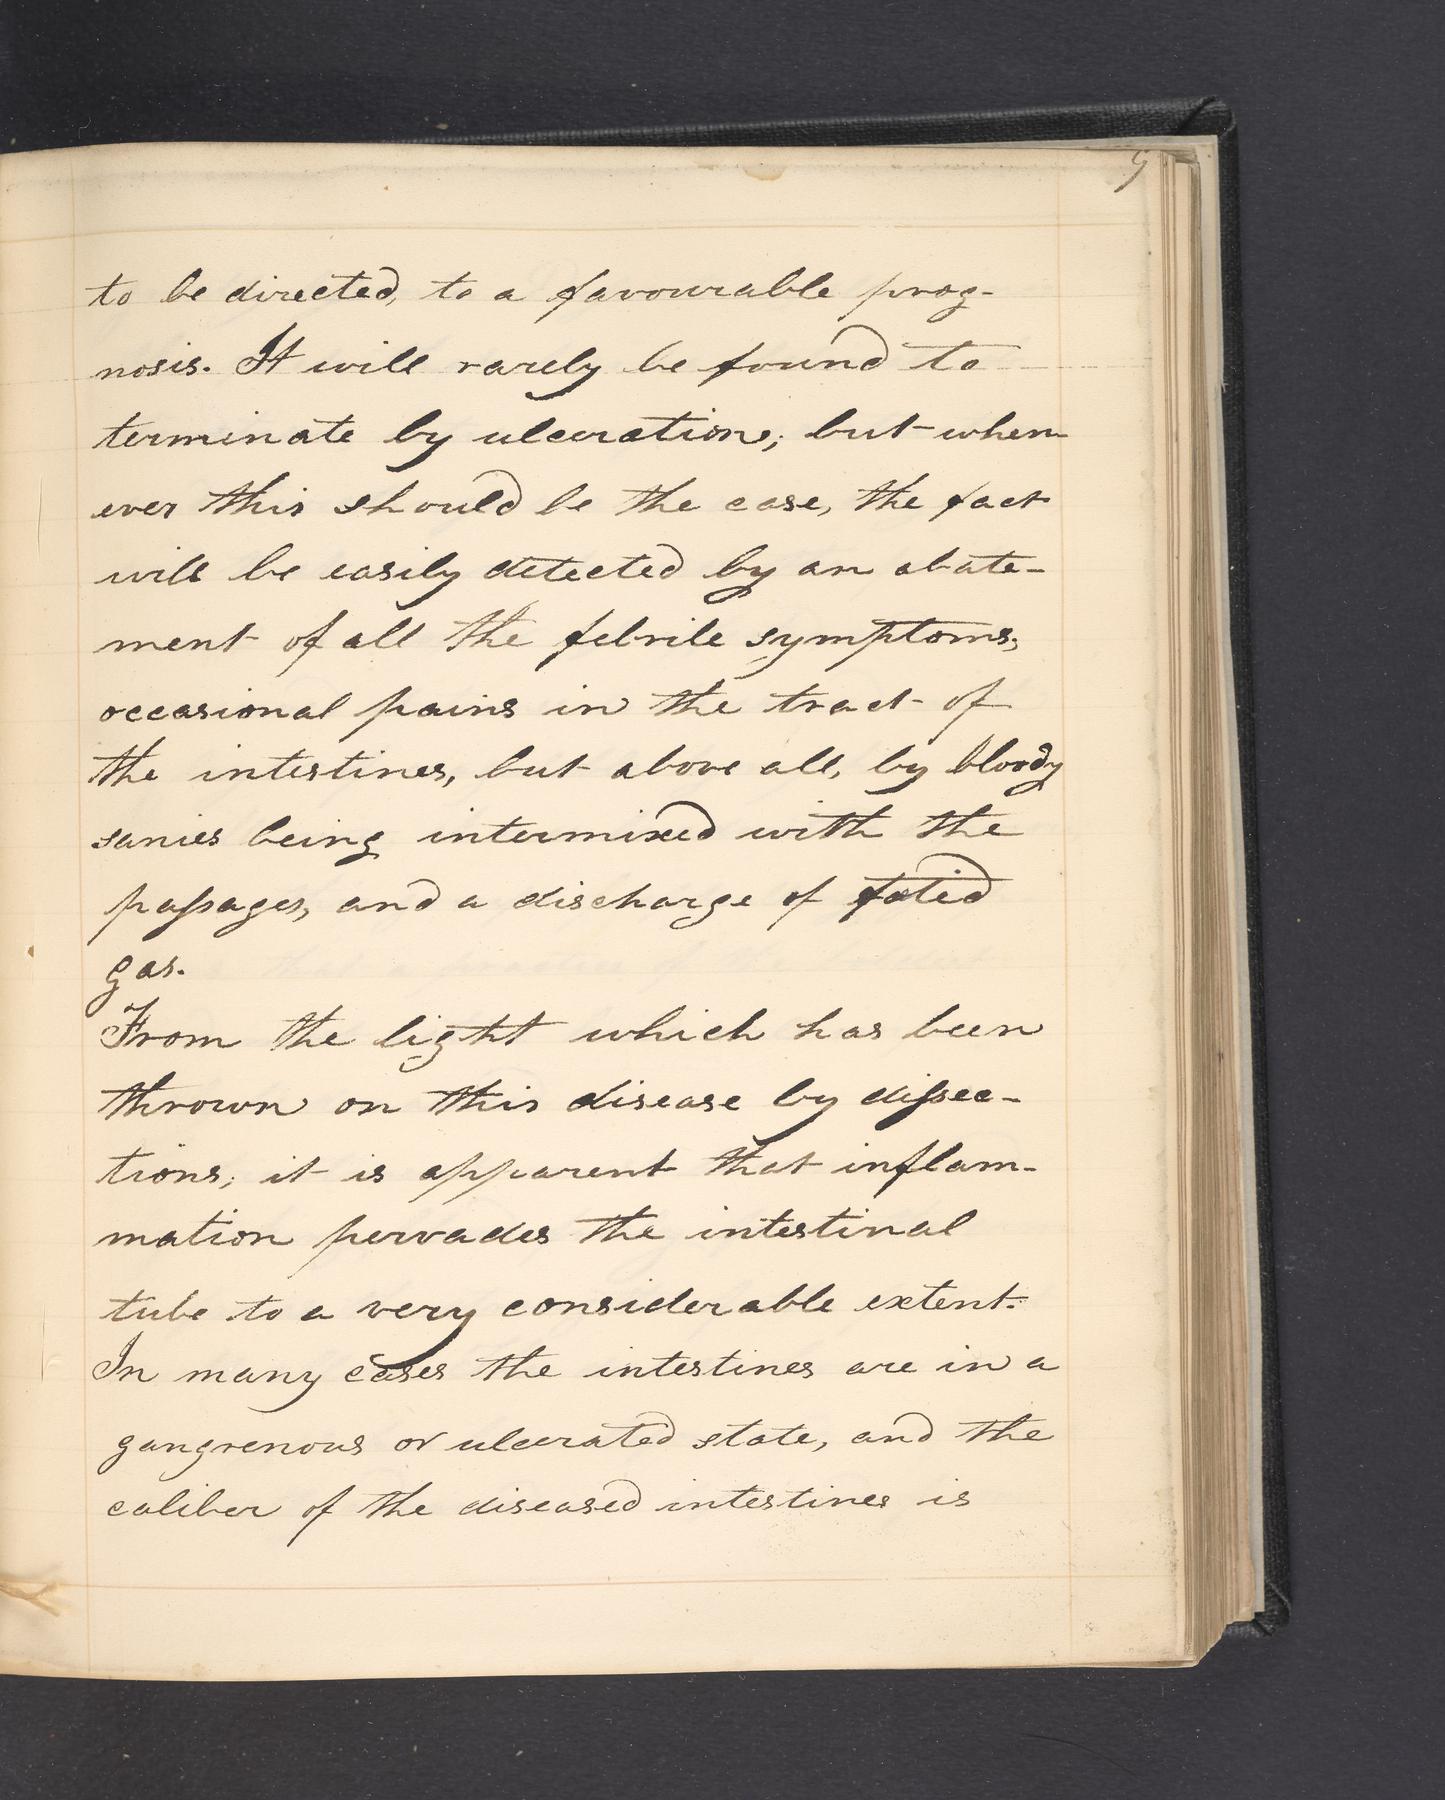 9
to be directed, to a favourable prog-
nosis. It will rarely be found to
terminate by ulceration; but when-
ever this should be the case, the fact
will be easily detected by an abate-
ment of all the febrile symptoms,
occasional pains in the tract of
the intestines, but above all, by bloody
sanies being intermixed with the
paſsages, and a discharge of fœtid
gas.
From the light which has been
thrown on this disease by diſsec-
tions; it is apparent that inflam-
mation pervades the intestinal
tube to a very considerable extent.
In many cases the intestines are in a
gangrenous or ulcerated state, and the
caliber of the diseased intestines is